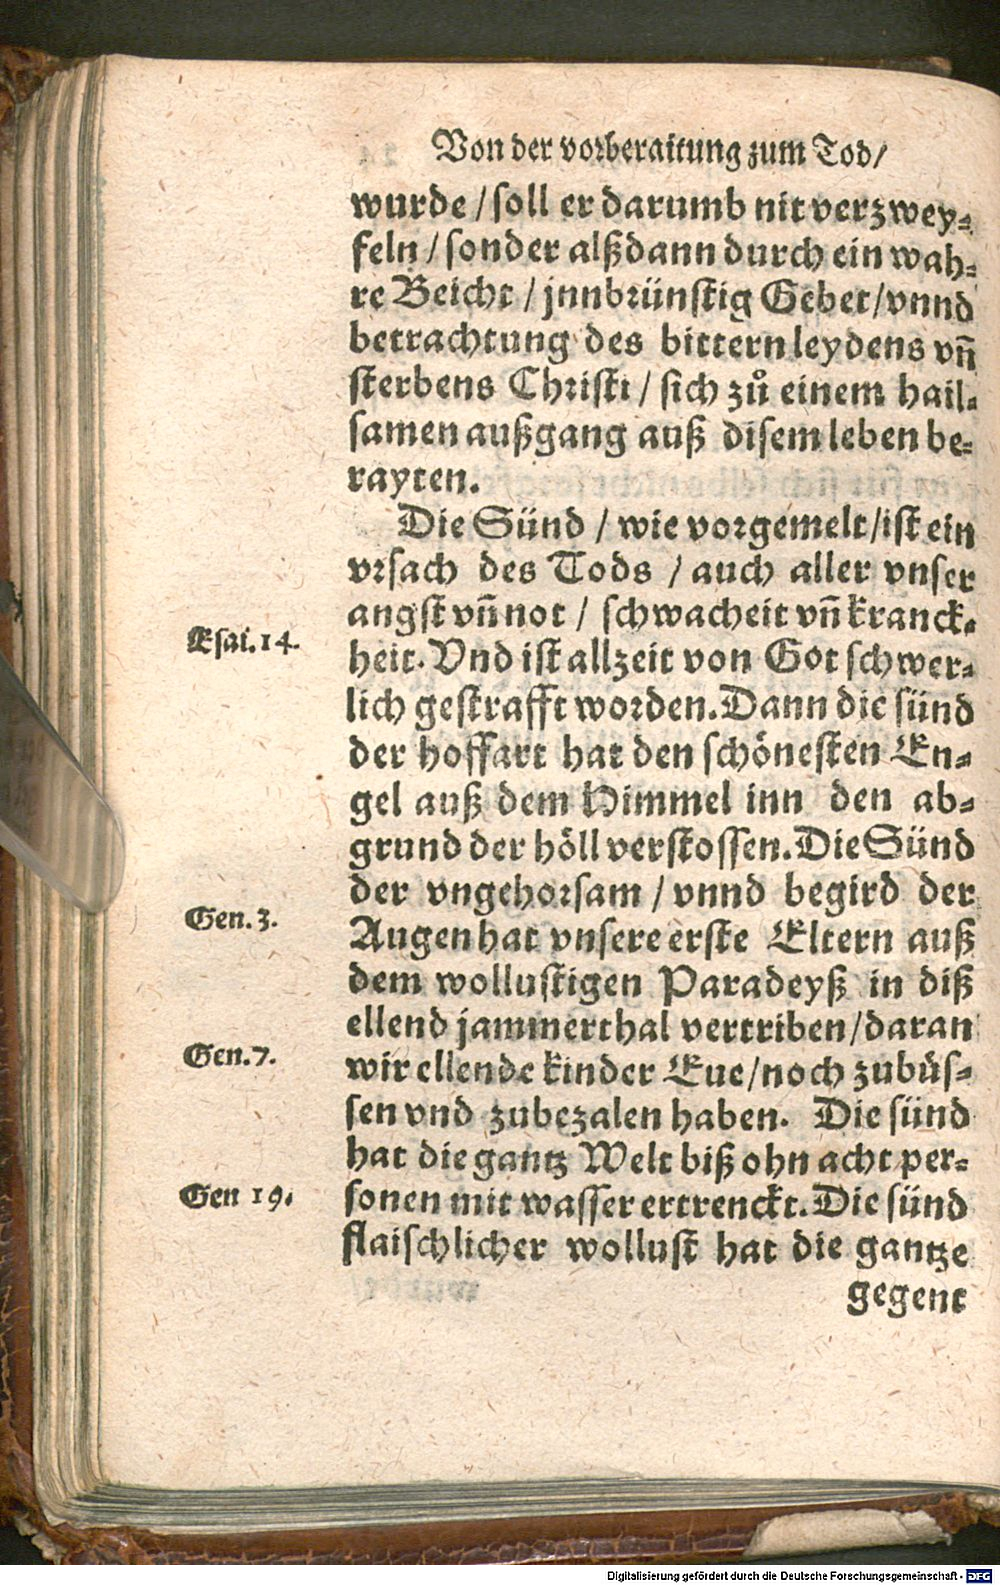 Von der vorberaitung zum Tod/
wurde / soll er darumb nit verzwey⸗
feln / sonder alßdann durch ein wah⸗
re Beicht / jnnbrünstig Gebet/vnnd
betrachtung des bittern leydens vñ
sterbens Christi / sich zů einem hail⸗
samen außgang auß disem leben be⸗
rayten.
Die Sünd / wie vorgemelt/ist ein
vrsach des Tods / auch aller vnser
angst vñ not / schwacheit vñ kranck⸗
Esai. 14.
heit. Vnd ist allzeit von Got schwer⸗
lich gestrafft worden. Dann die sünd
der hoffart hat den schönesten En⸗
gel auß dem Himmel inn den ab⸗
grund der höll verstossen. Die Sünd
der vngehorsam / vnnd begird der
Gen. 3.
Augen hat vnsere erste Eltern auß
dem wollustigen Paradeyß in diß
ellend jammerthal vertriben/daran
Gen. 7.
wir ellende kinder Eue/noch zubüs⸗
sen vnd zubezalen haben. Die sünd
hat die gantz Welt biß ohn acht per⸗
Gen 19.
sonen mit wasser ertrenckt. Die sünd
flaischlicher wollust hat die gantze
gegent
Digitalisierung gefördert durch die Deutsche Forschungsgemeinschaft - DFG